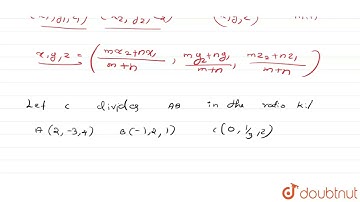 (x₁, y₁, z₁) (x₂, y₂, z₂) (x, y, z)
x, y, z = ( mx₂+nx₁ / m+n , my₂+ny₁ / m+n , mz₂+nz₁ / m+n )
Let c divides AB in the ratio k:1
A (2, -3, 4) B (-1, 2, 1) C (0, 1/3, 2)
doubtnut